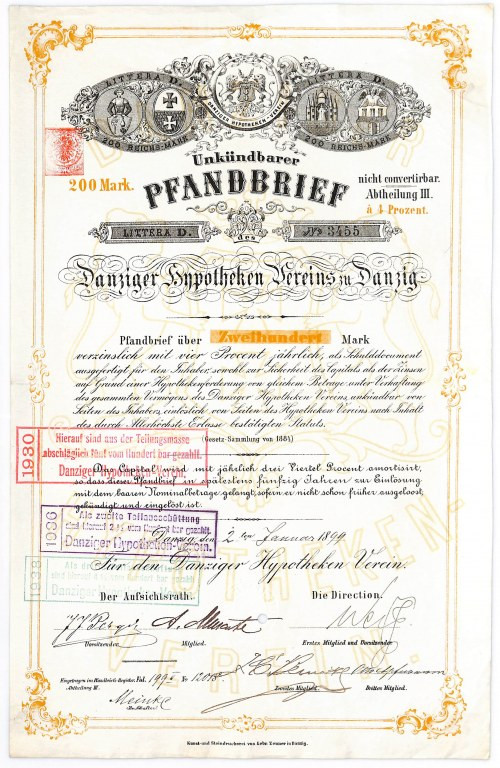 LITTERA D.
200 REICHS-MARK
DANZIGER HYPOTHEKEN-VEREIN
LITTERA D.
200 REICHS-MARK
Unkündbarer
200 Mark.
PFANDBRIEF
nicht convertirbar.
Abtheilung III.
à 4 Prozent.
LITTERA D.
des
No 3455
Danziger Hypotheken Vereins zu Danzig
Pfandbrief über Zweihundert Mark
verzinslich mit vier Procent jährlich, als Schulddocument
ausgefertigt für den Inhaber, sowohl zur Sicherheit des Capitals als der Zinsen
auf Grund einer Hypothekenforderung von gleichem Betrage unter Verhaftung
des gesammten Vermögens des Danziger Hypotheken Vereins, unkündbar von
Seiten des Inhabers, einlöslich von Seiten des Hypotheken Vereins nach Inhalt
des durch Allerhöchste Erlasse bestätigten Statuts.
(Gesetz-Sammlung von 1881)
1930
Hierauf sind aus der Teilungsmasse
abschläglich fünf vom Hundert bar gezahlt.
Danziger Hypotheken-Verein.
Das Capital wird mit jährlich drei Viertel Procent amortisirt,
so dass dieser Pfandbrief in spätestens fünfzig Jahren zur Einlösung
mit dem baaren Nominalbetrage gelangt, sofern er nicht schon früher ausgeloost,
gekündigt und eingelöst ist.
1936
Als zweite Teilausschüttung
sind hierauf 2½ vom Hundert bar gezahlt.
Danziger Hypotheken-Verein.
Danzig, den 2ten Januar 1899
Für den Danziger Hypotheken Verein.
1938
Als
sind hierauf vom Hundert bar gezahlt
Danziger
Der Aufsichtsrath.
Die Direction.
Vorsitzender.
Mitglied.
Erstes Mitglied und Vorsitzender
Eingetragen im Händbuch-Register Fol. 199 No 12015
Abtheilung III.
Zweites Mitglied.
Drittes Mitglied.
Meinke
Kunst- und Steindruckerei von Gebr. Zeuner in Danzig.